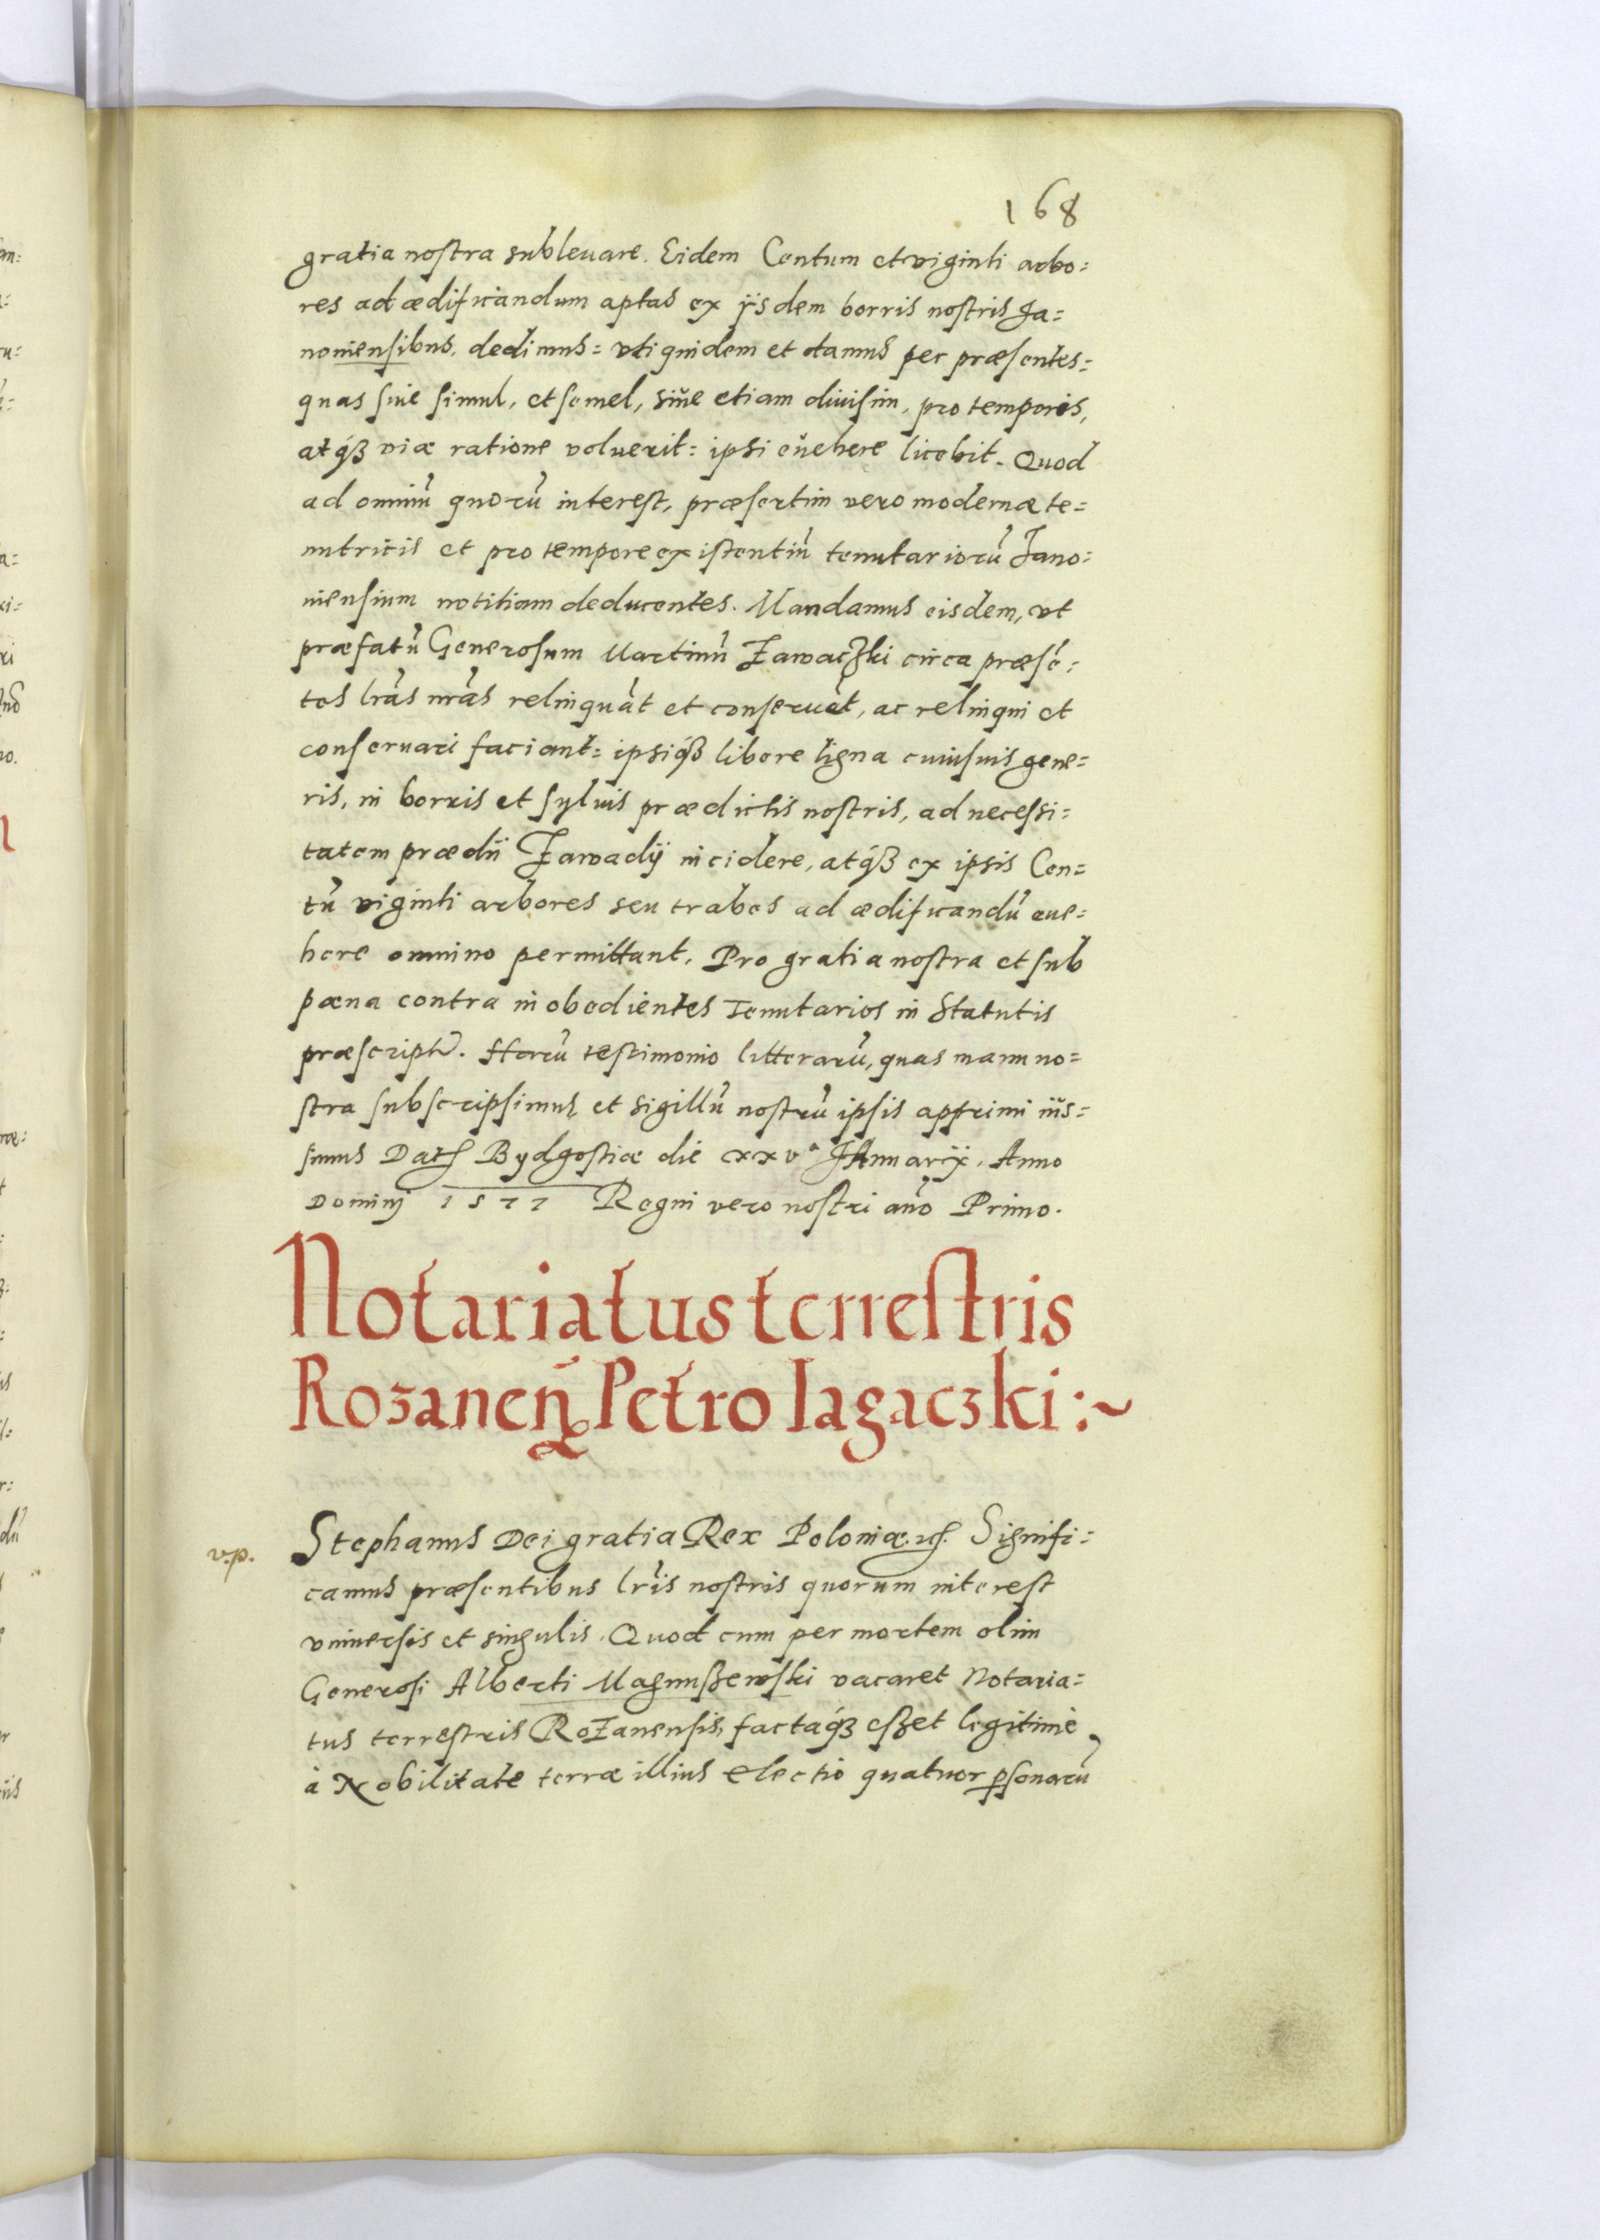 168
gratia nostra subleuare. Eidem Centum et viginti arbo=
res ad ædificandum aptas ex ijsdem borris nostris Ja=
nouiensibus, dedimus= vti quidem et damus per præsentes=
quas siue simul, et semel, siue etiam diuisim, pro temporis,
atq́ꝫ viæ ratione voluerit= ipsi euehere licebit. Quod
ad omniũ quorũ interest, præsertim vero modernæ te=
nutricis et pro tempore existentiũ tenutariorũ Jano=
uiensium notitiam deducentes. Mandamus eisdem, vt
præfatũ Generosum Martinũ Zawaczki circa præsẽ=
tes lr̃as nr̃as relinquãt et conseruẽt, ac relinqui et
conseruari faciant= ipsiq́ꝫ libere ligna cuiusuis gene=
ris, in borris et syluis prædictis nostris, ad necessi=
tatem prædii Zawady incidere, atq́ꝫ ex ipsis Cen=
tũ viginti arbores seu trabes ad ædificandũ eue=
here omnino permittant. Pro gratia nostra et sub
pæna contra inobedientes Tenutarios in Statutis
præscripta. Harũ testimonio litterarũ, quas manu no=
stra subscripsimus et sigillũ nostrũ ipsis apprimi ius=
simus Dat̃ Bydgostiæ die xxvᵃ JAnuarij. Anno
Dominj 1577 Regni vero nostri año Primo.
Notariatus terrestris
Rozaneñ Petro Iagaczki:~
v.p.
Stephanus Dei gratia Rex Poloniæ. etc̃. Signifi=
camus præsentibus lr̃is nostris quorum interest
vniuersis et singulis. Quod cum per mortem olim
Generosi Alberti Magnuszewski vacaret Notaria=
tus terrestris RoZanensis, factaq́ꝫ eszet legitimè
à Nobilitate terræ illius electio quatuor ꝑsonarũ